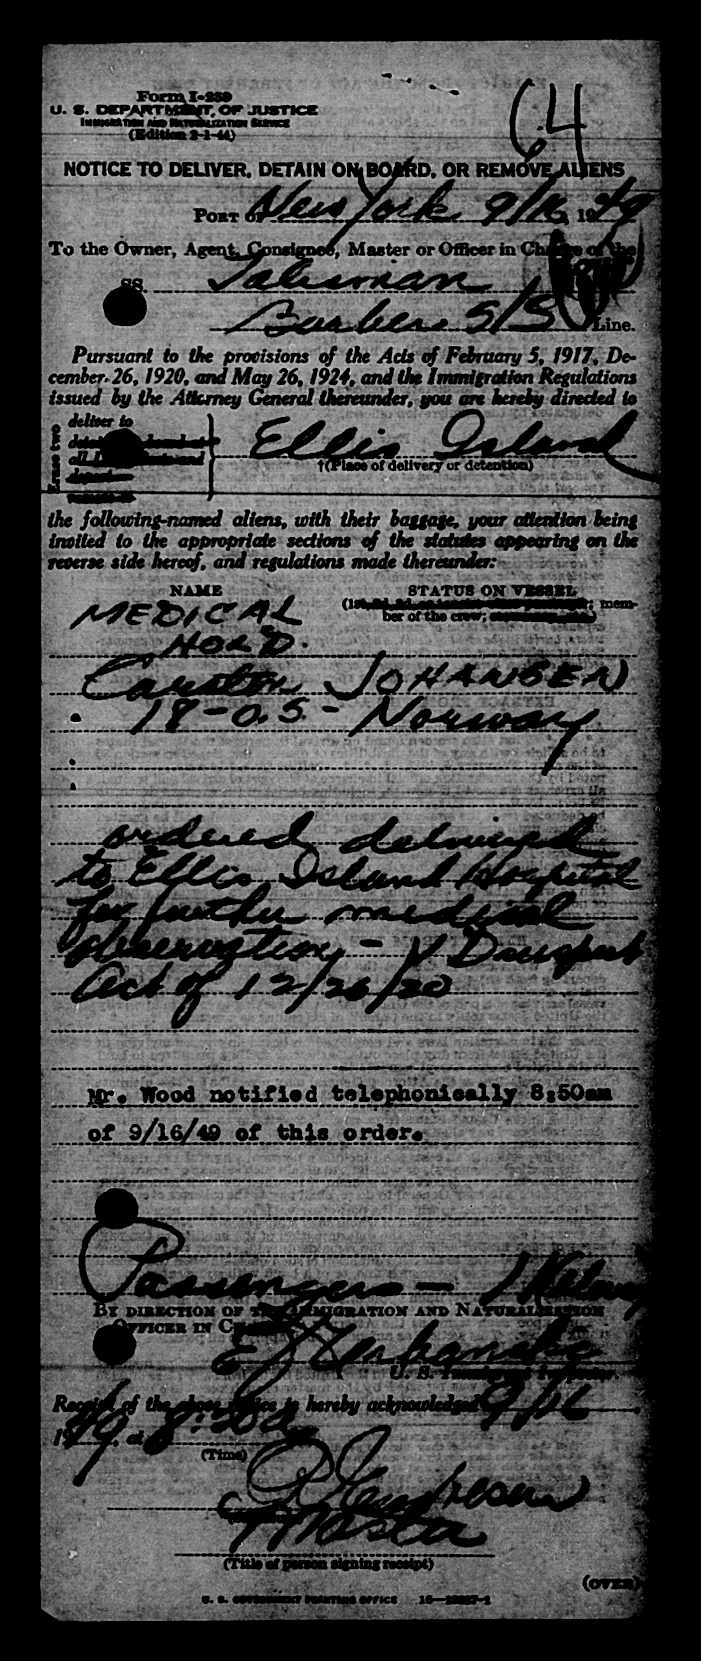 64
Form I-259
U. S. DEPARTMENT OF JUSTICE
IMMIGRATION AND NATURALIZATION SERVICE
(Edition 2-1-44)
NOTICE TO DELIVER, DETAIN ON BOARD, OR REMOVE ALIENS
PORT OF New York 9/16, 1949
To the Owner, Agent, Consignee, Master or Officer in Charge of the
SS Talisman
Barber S/S Line.
Pursuant to the provisions of the Acts of February 5, 1917, De-
cember 26, 1920, and May 26, 1924, and the Immigration Regulations
issued by the Attorney General thereunder, you are hereby directed to
deliver to
Erase two
Ellis Island
†(Place of delivery or detention)
the following-named aliens, with their baggage, your attention being
invited to the appropriate sections of the statutes appearing on the
reverse side hereof, and regulations made thereunder:
NAME STATUS ON VESSEL
mem-
ber of the crew;
MEDICAL
HOLD.
Carsten JOHANSEN
18-O.S.- Norway
ordered delivered
to Ellis Island Hospital
for further medical
observation -
Act of 12/26/20
Mr. Wood notified telephonically 8:50am
of 9/16/49 of this order.
Passengers - 1
BY DIRECTION OF THE IMMIGRATION AND NATURALIZATION
OFFICER IN CHARGE
U. S.
Receipt of the above notice is hereby acknowledged 9/16
1949, at
(Time)
Master
(Title of person signing receipt)
(OVER)
U. S. GOVERNMENT PRINTING OFFICE